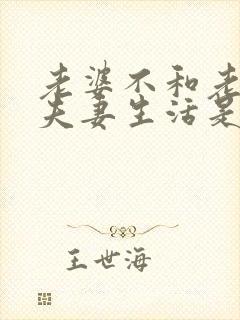 老婆不和老
夫妻生活是
王世海